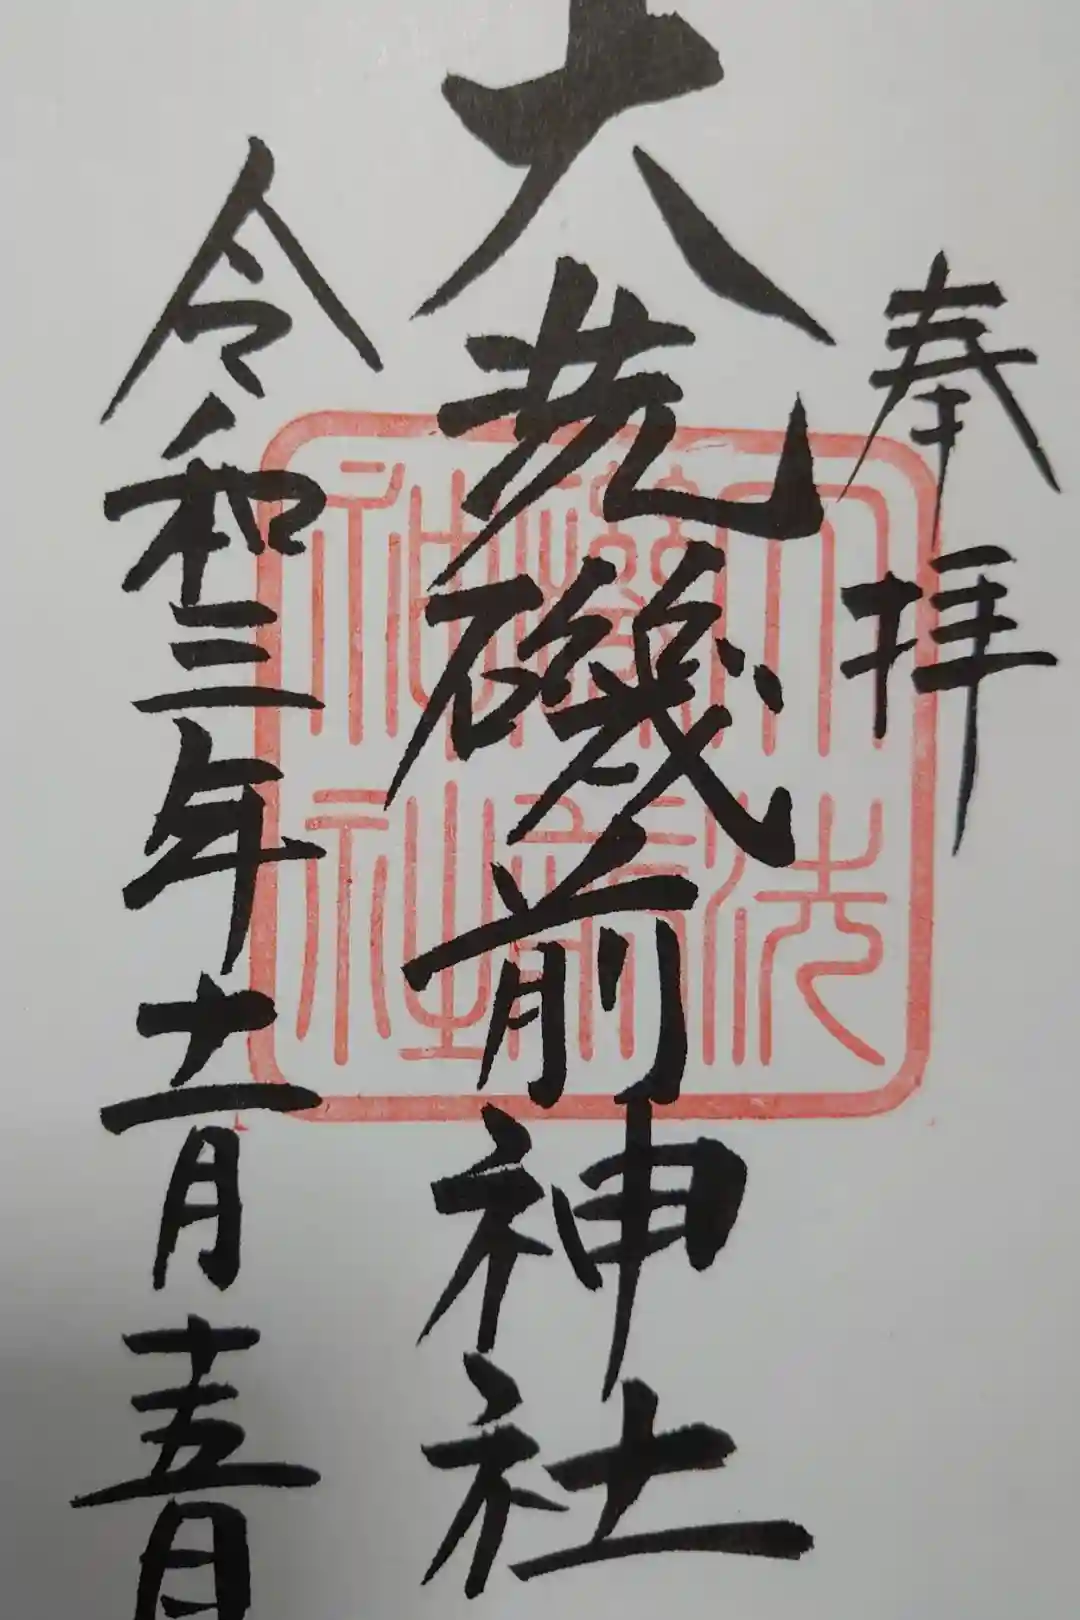 奉拝
大洗磯前神社
令和三年十一月十五日
大洗
磯前
神社